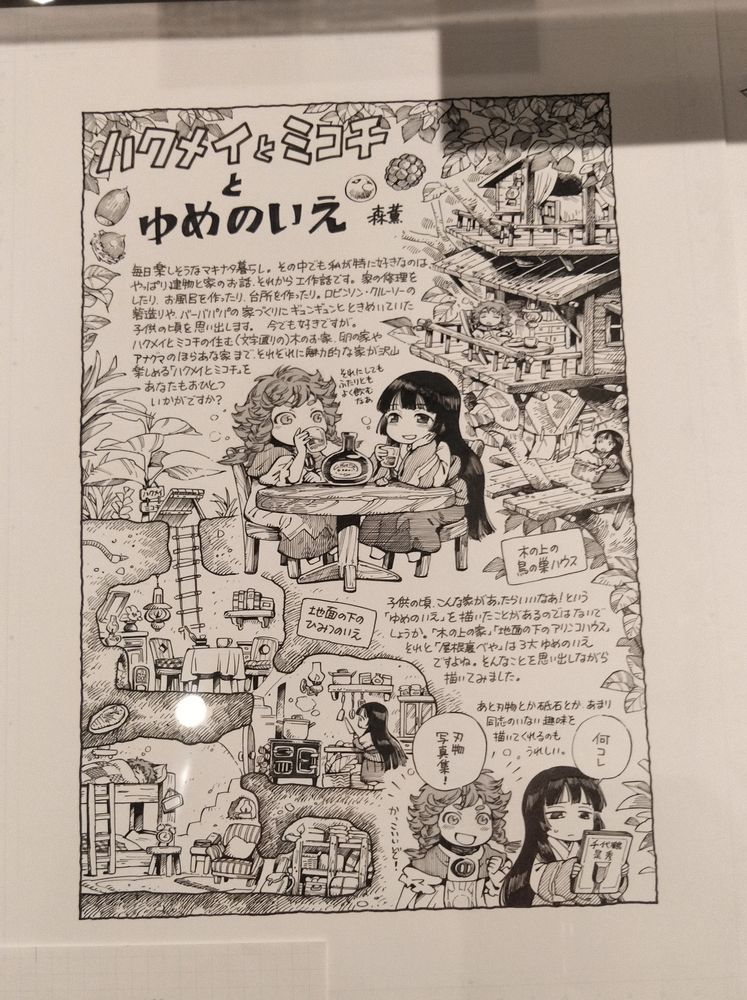 ハクメイとミコチ
と
ゆめのいえ
森薫
毎日楽しそうなマキナタ暮らし。その中でも私が特に好きなのは、
やっぱり建物と家のお話、それから工作話です。家の修理を
したり、お風呂を作ったり、台所を作ったり。ロビンソン・クルーソーの
砦造りや、バーバパパの家づくりにギュンギュンとときめいていた
子供の頃を思い出します。今でも好きですが。
ハクメイとミコチの住む(文字通りの)木のお家、卵の家や
アナグマのほらあな家まで、それぞれに魅力的な家が沢山
楽しめる「ハクメイとミコチ」を
あなたもおひとつ
いかがですか?
それにしても
ふたりとも
よく飲む
なあ
ハクメイ
木の上の
鳥の巣ハウス
地面の下の
ひみつのいえ
子供の頃、こんな家があったらいいなあ!という
「ゆめのいえ」を描いたことがあるのではないで
しょうか。「木の上の家」「地面の下のアリンコハウス」
それと「屋根裏べや」は3大ゆめのいえ
ですよね。そんなことを思い出しながら
描いてみました。
あと刃物とか砥石とか、あまり
同志のいない趣味を
描いてくれるのも
うれしい。
何コレ
刃物
写真集!
かっこいいど〜!
千代鶴
是秀